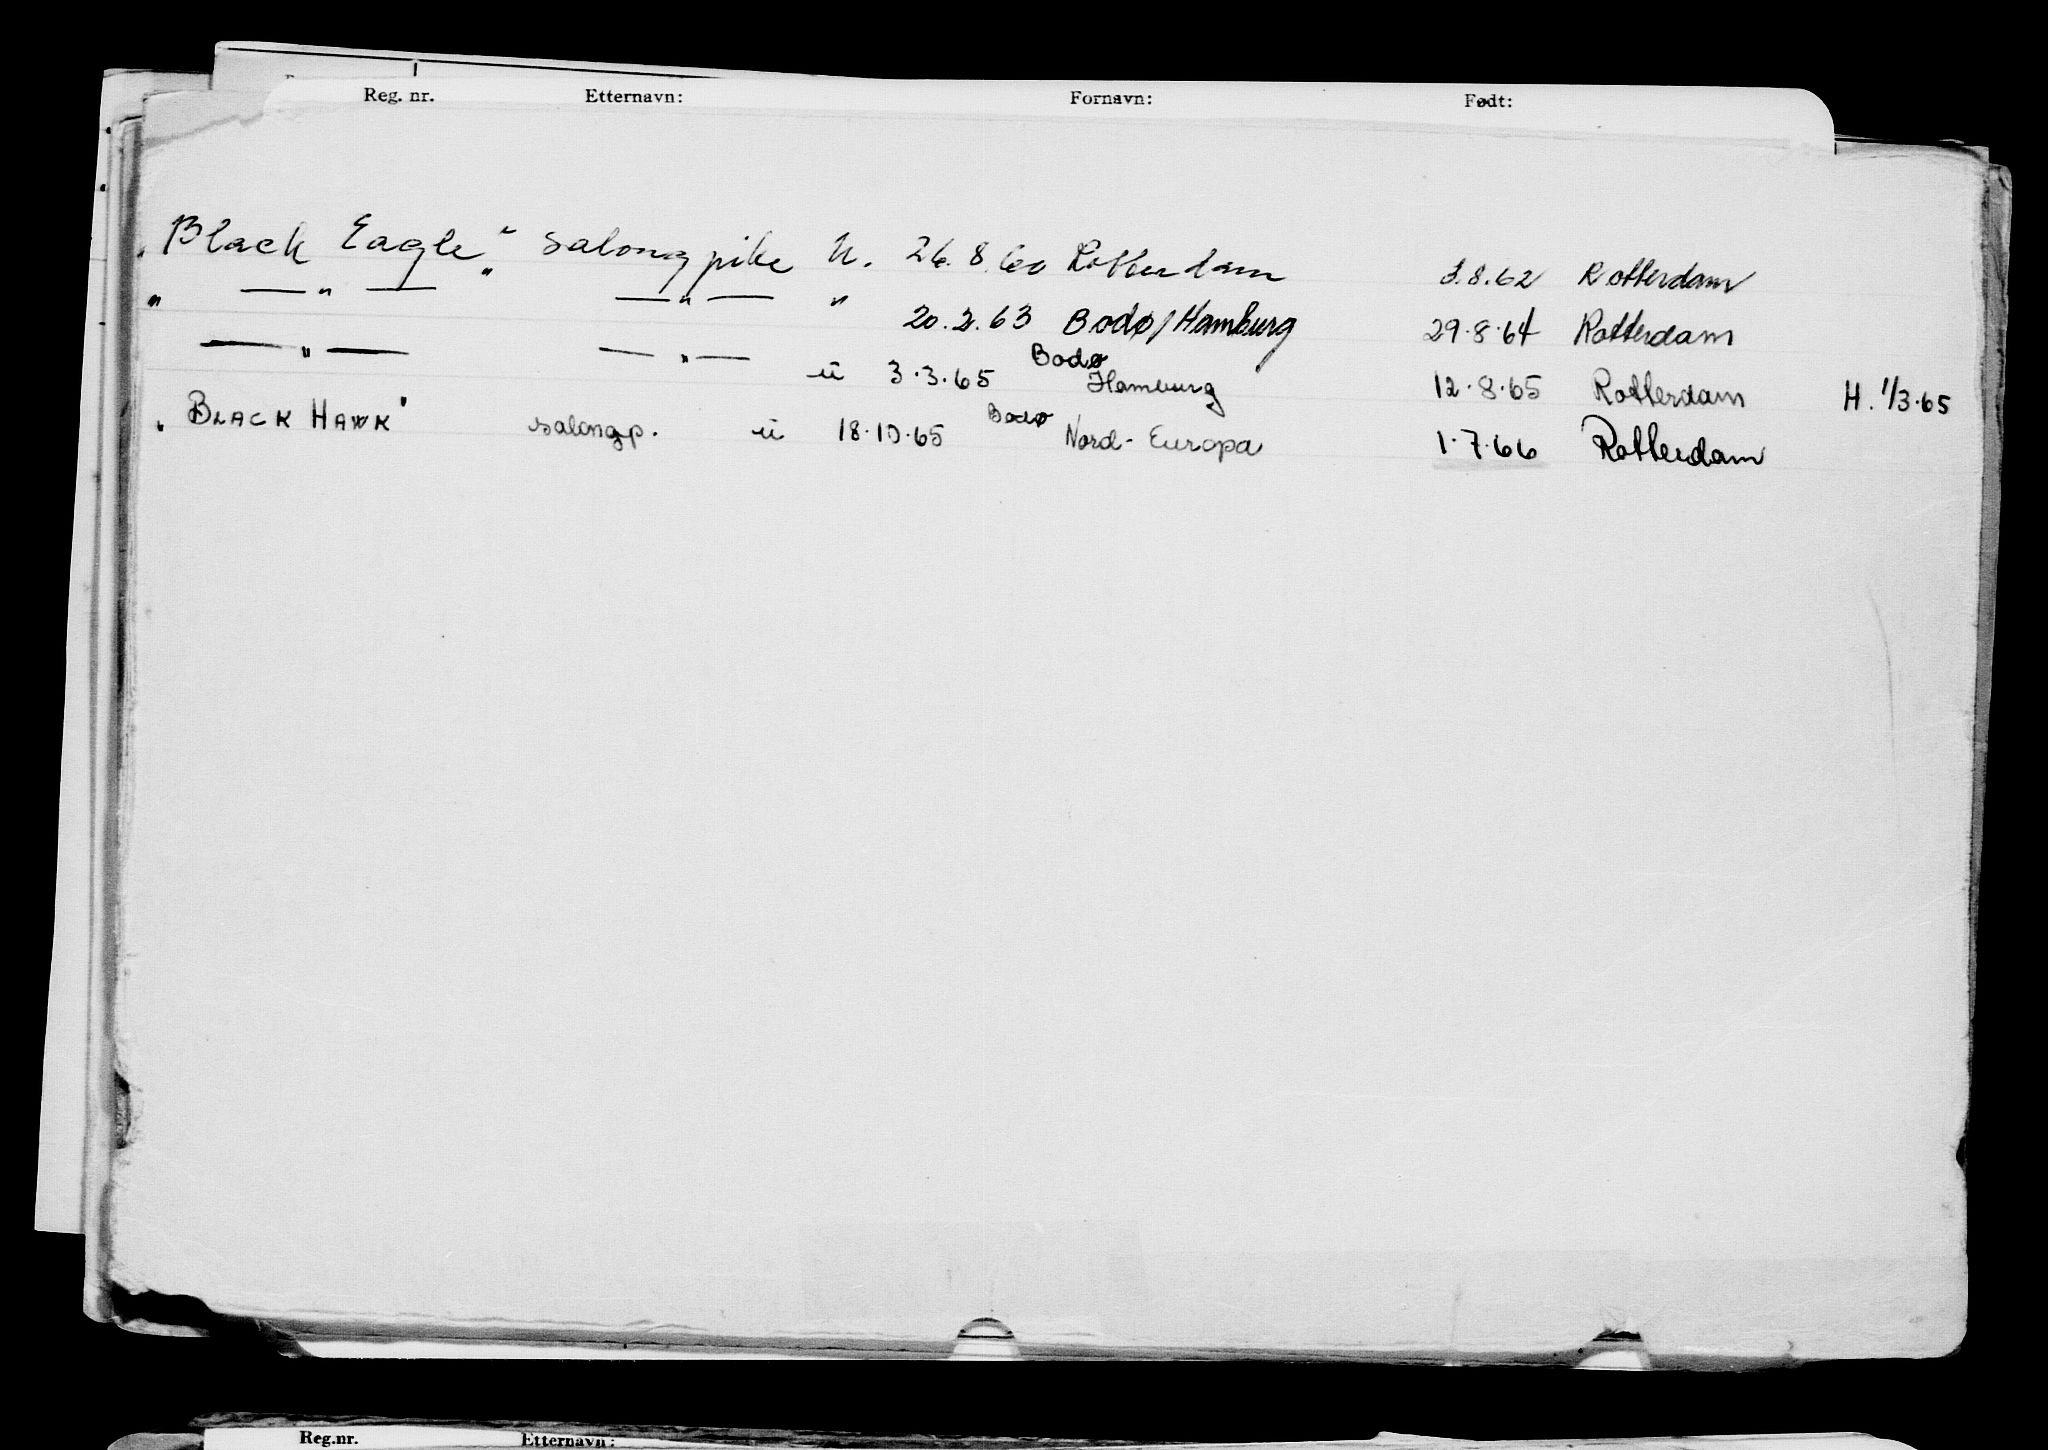 Reg. nr. Etternavn: Fornavn: Født:
"Black Eagle" salongpike u. 26.8.60 Rotterdam 3.8.62 Rotterdam
" — " — " — " — " 20.2.63 Bodø/Hamburg 29.8.64 Rotterdam
— " — — " — u 3.3.65 Bodø Hamburg 12.8.65 Rotterdam H. 1/3.65
"BLACK HAWK" salongp. u 18.10.65 Bodø Nord-Europa 1.7.66 Rotterdam
Reg.nr. Etternavn: